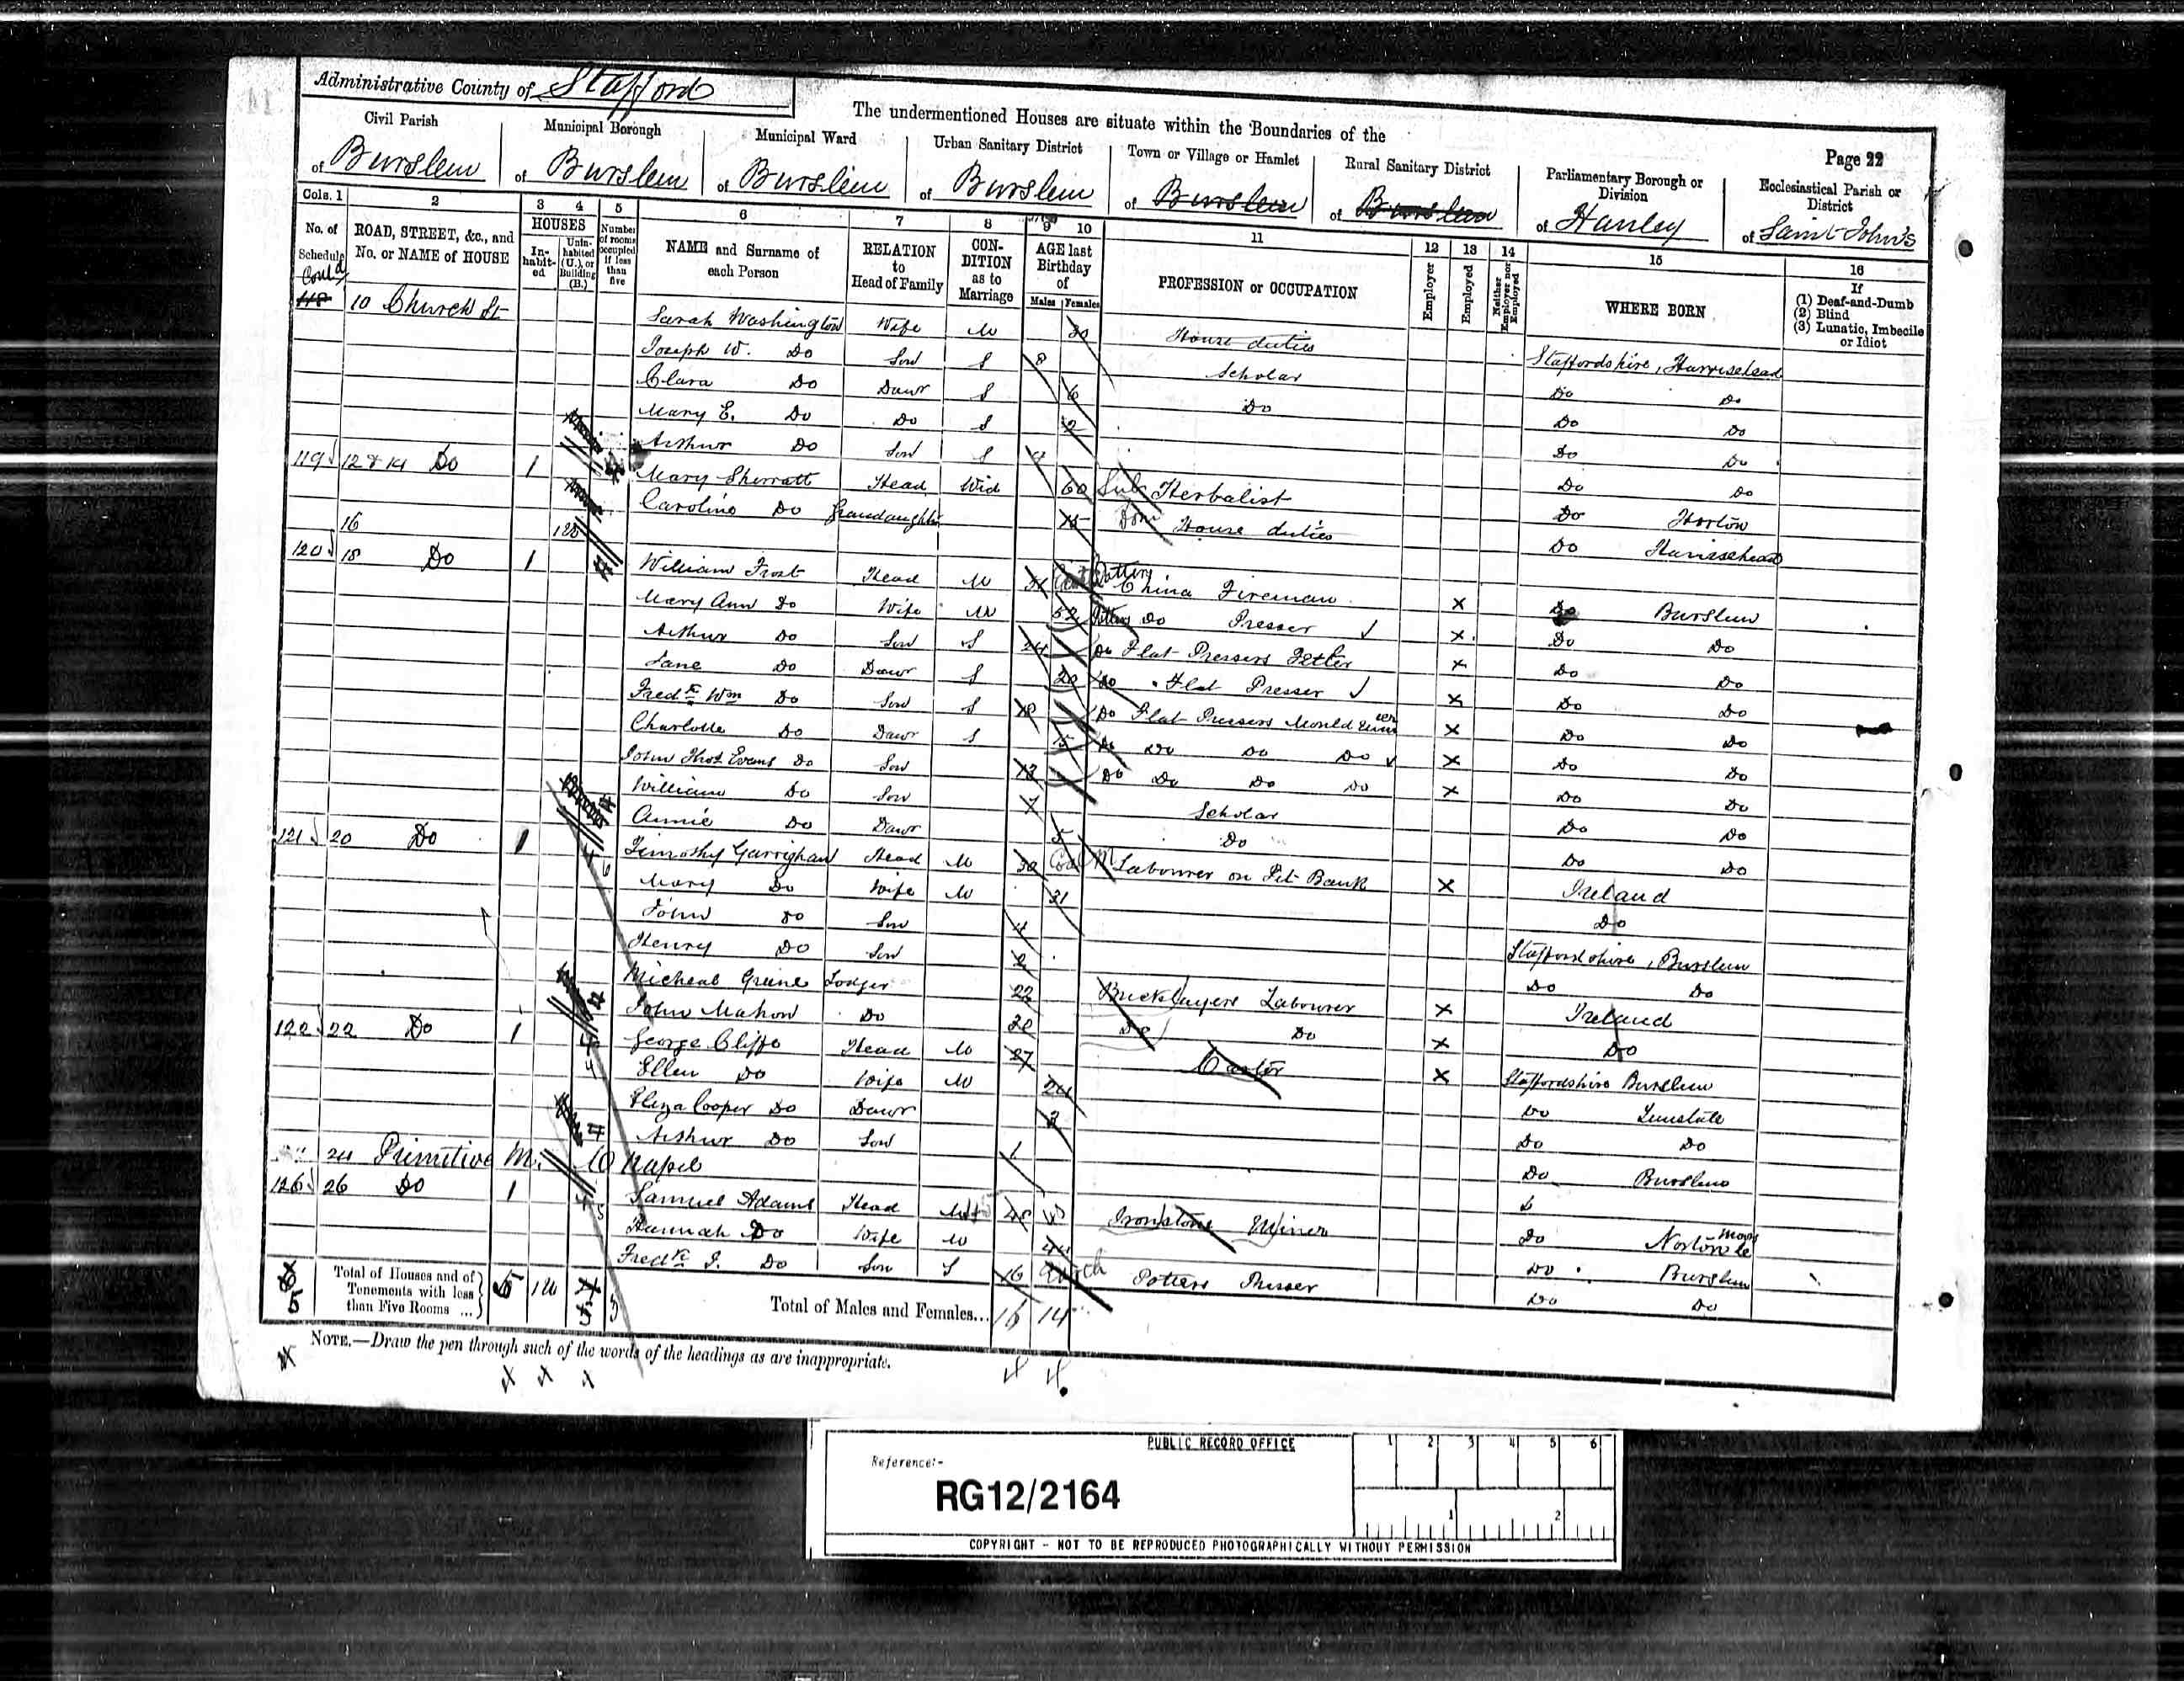 Administrative County of Stafford
The undermentioned Houses are situate within the Boundaries of the
Page 22
Civil Parish of Burslem
Municipal Borough of Burslem
Municipal Ward of Burslem
Urban Sanitary District of Burslem
Town or Village or Hamlet of Burslem
Rural Sanitary District of Burslem
Parliamentary Borough or Division of Hanley
Ecclesiastical Parish or District of Saint John's
Cols. 1 2 3 4 5 6 7 8 9 10 11 12 13 14 15 16
No. of Schedule
ROAD, STREET, &c., and No. or NAME of HOUSE
HOUSES
Inhabited
Uninhabited (U.), or Building (B.)
Number of rooms occupied if less than five
NAME and Surname of each Person
RELATION to Head of Family
CONDITION as to Marriage
AGE last Birthday of
Males Females
PROFESSION or OCCUPATION
Employer
Employed
Neither Employer nor Employed
WHERE BORN
If (1) Deaf-and-Dumb (2) Blind (3) Lunatic, Imbecile or Idiot
10 Church St Sarah Washington Wife M 30 House duties Staffordshire, Harriseahead
Joseph W. Do Son S 8 Scholar Do Do
Clara Do Daur S 6 Do Do Do
Mary E. Do Do S 2 Do Do
Arthur Do Son S Do Do
119 12 & 14 Do 1 Mary Sherratt Head Wid 60 Herbalist Do Horton
Caroline Do Grandaughter 15 House duties Do Harrisehead
16
120 18 Do 1 William Frost Head M Pottery China Fireman X Burslem
Mary Ann Do Wife M 52 Do Presser X Do Do
Arthur Do Son S 24 Do Flat Pressers Fetler X Do Do
Jane Do Daur S 20 Do Flat Presser X Do Do
Fredk Wm Do Son S 18 Do Flat Pressers Mould Runner X Do Do
Charlotte Do Daur S 15 Do Do Do Do X Do Do
John Thos Evans Do Son 13 Do Do Do Do X Do Do
William Do Son 7 Scholar Do Do
Annie Do Daur 5 Do Do Do
121 20 Do 1 Timothy Garrighan Head M 30 Labourer on Pit Bank X Ireland
Mary Do Wife M 31 Do
John Do Son 4 Staffordshire, Burslem
Henry Do Son 2 Do Do
Micheal Greene Lodger 22 Bricklayers Labourer X Ireland
John Mahon Do 20 Do Do X Do
122 22 Do 1 George Cliffe Head M 27 Carter X Staffordshire Burslem
Ellen Do Wife M 24 Do Tunstall
Eliza Cooper Do Daur 2 Do Do
Arthur Do Son 1 Do Burslem
24 Primitive M. Chapel
126 26 Do 1 Samuel Adams Head M 48 Ironstone Miner Do Norton le Moors
Hannah Do Wife M 44 Do Burslem
Fredk J. Do Son S 16 Potters Presser Do Do
Total of Houses and of Tenements with less than Five Rooms ...
5
Total of Males and Females... 16 14
NOTE.—Draw the pen through such of the words of the headings as are inappropriate.
PUBLIC RECORD OFFICE
1 2 3 4 5 6
Reference:-
RG12/2164
1 2
COPYRIGHT - NOT TO BE REPRODUCED PHOTOGRAPHICALLY WITHOUT PERMISSION